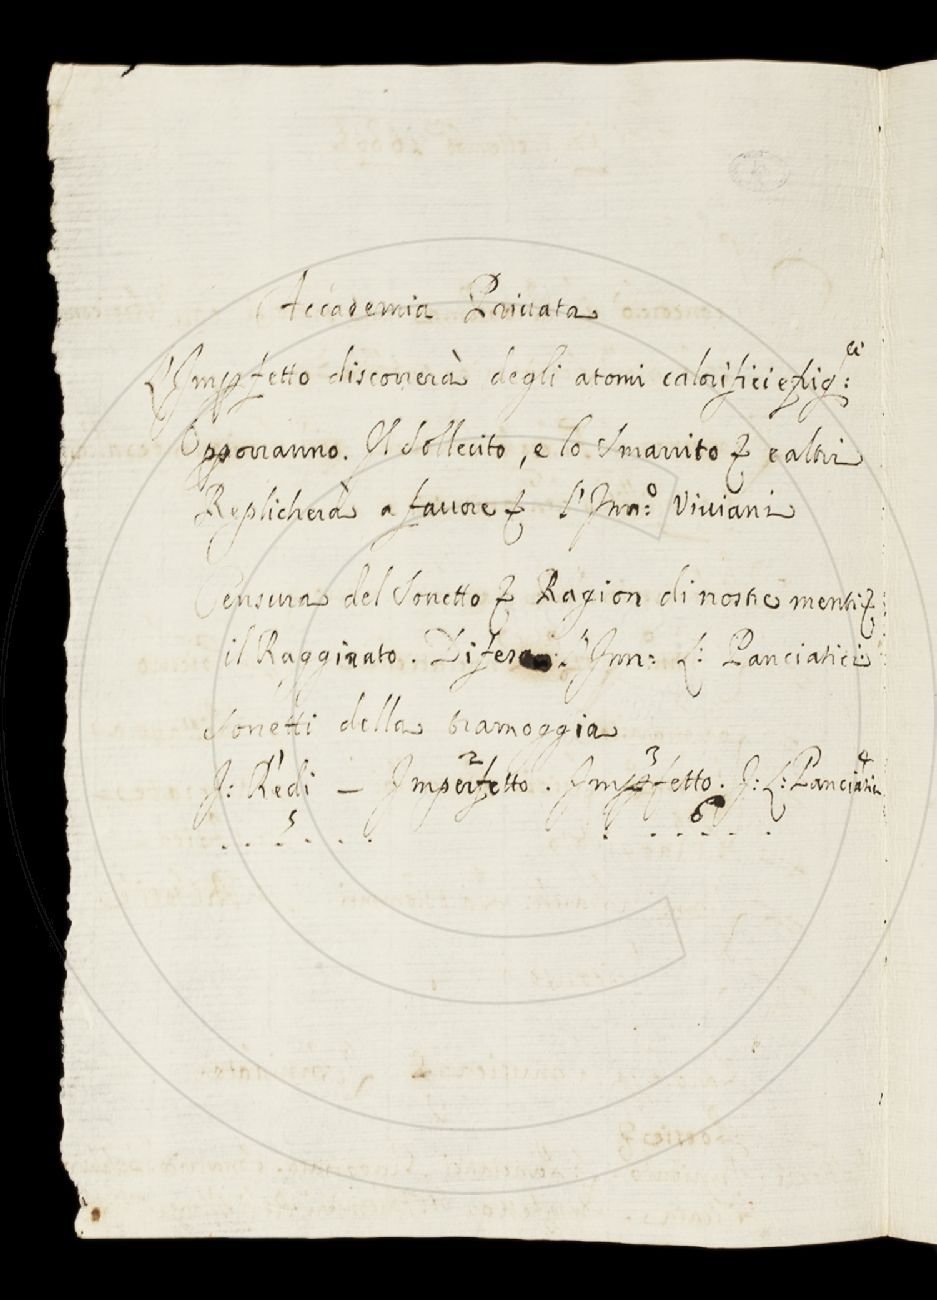 Accademia Privata
L'Impfetto discorrerà degli atomi calorifici e frig:ci
Opporranno. Il Sollecito, e lo Smarrito & e altri
Replicherà a favore & l'Inn:o Viviani
Censura del Sonetto & Ragion di nostre menti &:
il Ragginato. Difesa. l'Inn: L: Panciatici
Sonetti della tramoggia
I: Redi 1 — Imperfetto 2. Impfetto 3. I: L: Panciatici 4
. . 5 . . . . . . . 6 . .